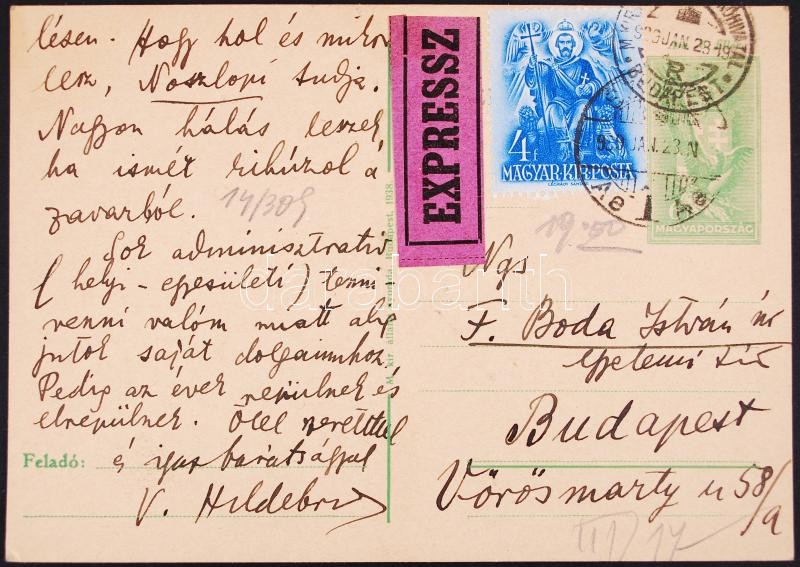 lésen. Hogy hol és mikor
lesz, Noszlopi tudja.
Nagyon hálás leszek
ha ismét kihúzol a
zavarból.
14/309
Sok adminisztratív
(helyi-egyesületi) tenni
venni valóm miatt alig
jutok saját dolgaimhoz
Pedig az évek repülnek és
elrepülnek. Ölel szeretettel
Feladó:
és igaz barátsággal
V. Hildebr
EXPRESSZ
4f
MAGYAR·KIR·POSTA
MAGYARORSZÁG
BUDAPEST
M. kir. állami Budapest, 1938.
19.50
Ngs
F. Boda István úr
egyetemi
Budapest
Vörösmarty u 58/a
III/17
darabanth